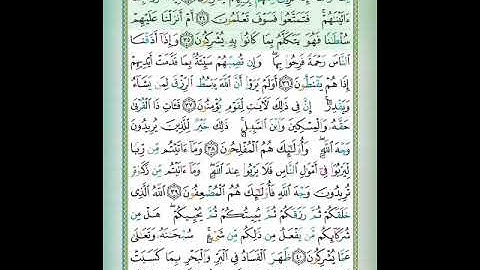 ءَاتَيْنَٰهُمْ ۚ فَتَمَتَّعُوا۟ فَسَوْفَ تَعْلَمُونَ ٣٤ أَمْ أَنزَلْنَا عَلَيْهِمْ
سُلْطَٰنًا فَهُوَ يَتَكَلَّمُ بِمَا كَانُوا۟ بِهِۦ يُشْرِكُونَ ٣٥ وَإِذَآ أَذَقْنَا
ٱلنَّاسَ رَحْمَةً فَرِحُوا۟ بِهَا ۖ وَإِن تُصِبْهُمْ سَيِّئَةٌۢ بِمَا قَدَّمَتْ أَيْدِيهِمْ
إِذَا هُمْ يَقْنَطُونَ ٣٦ أَوَلَمْ يَرَوْا۟ أَنَّ ٱللَّهَ يَبْسُطُ ٱلرِّزْقَ لِمَن يَشَآءُ
وَيَقْدِرُ ۚ إِنَّ فِى ذَٰلِكَ لَـَٔايَٰتٍ لِّقَوْمٍ يُؤْمِنُونَ ٣٧ فَـَٔاتِ ذَا ٱلْقُرْبَىٰ
حَقَّهُۥ وَٱلْمِسْكِينَ وَٱبْنَ ٱلسَّبِيلِ ۚ ذَٰلِكَ خَيْرٌ لِّلَّذِينَ يُرِيدُونَ
وَجْهَ ٱللَّهِ ۖ وَأُو۟لَٰٓئِكَ هُمُ ٱلْمُفْلِحُونَ ٣٨ وَمَآ ءَاتَيْتُم مِّن رِّبًا
لِّيَرْبُوَا۟ فِىٓ أَمْوَٰلِ ٱلنَّاسِ فَلَا يَرْبُوا۟ عِندَ ٱللَّهِ ۖ وَمَآ ءَاتَيْتُم مِّن زَكَوٰةٍ
تُرِيدُونَ وَجْهَ ٱللَّهِ فَأُو۟لَٰٓئِكَ هُمُ ٱلْمُضْعِفُونَ ٣٩ ٱللَّهُ ٱلَّذِى
خَلَقَكُمْ ثُمَّ رَزَقَكُمْ ثُمَّ يُمِيتُكُمْ ثُمَّ يُحْيِيكُمْ ۖ هَلْ مِن
شُرَكَآئِكُم مَّن يَفْعَلُ مِن ذَٰلِكُم مِّن شَىْءٍ ۚ سُبْحَٰنَهُۥ وَتَعَٰلَىٰ
عَمَّا يُشْرِكُونَ ٤٠ ظَهَرَ ٱلْفَسَادُ فِى ٱلْبَرِّ وَٱلْبَحْرِ بِمَا كَسَبَتْ